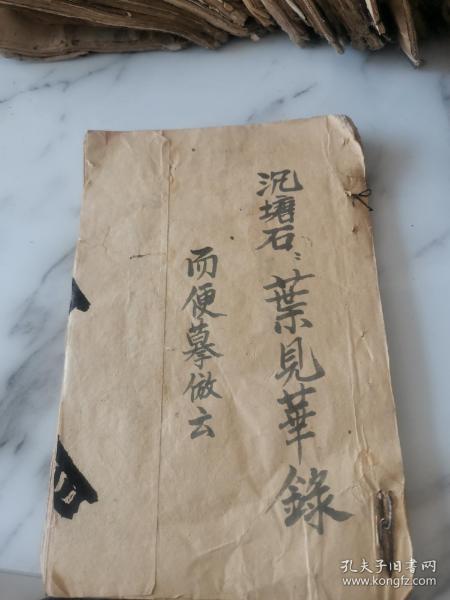 沉塘石：葉見華錄
而便摹倣云
孔夫子旧书网
www.kongfz.com